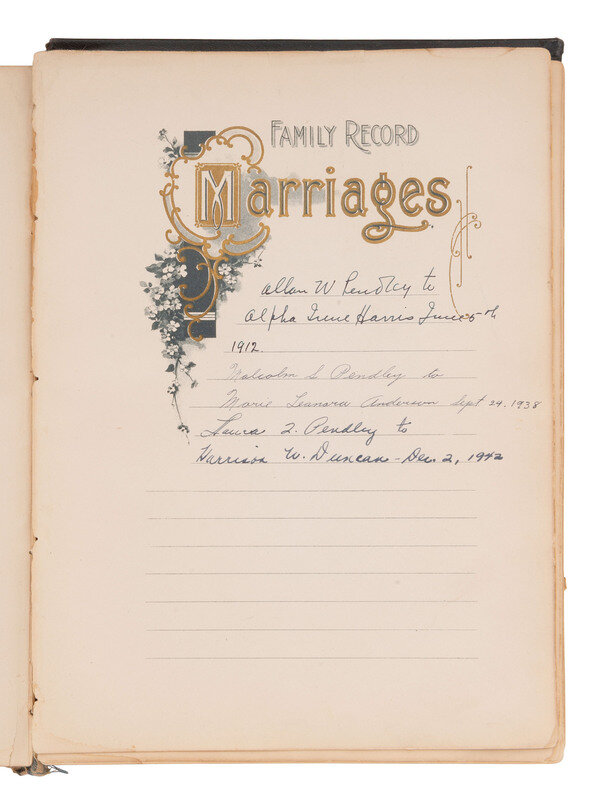 FAMILY RECORD
Marriages
Allan W Pendley to
Alpha Irene Harris June 5th
1912.
Malcolm S Pendley to
Marie Leanora Anderson Sept 24, 1938
Pendley to
Harrison W. Duncan - Dec. 2, 1942